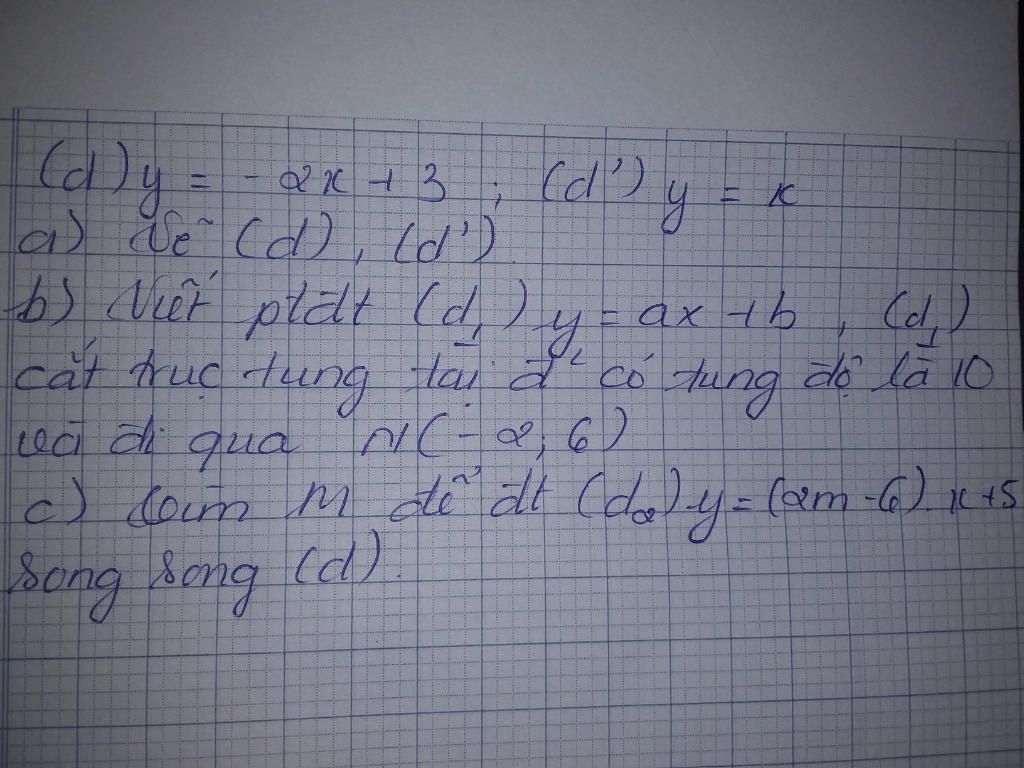 (d) y = -2x + 3 ; (d') y = x
a) Vẽ (d), (d').
b) Viết ptđt (d₁) y = ax + b, (d₁)
cắt trục tung tại đ² có tung độ là 10
và đi qua N(-2; 6)
c) Tìm m để đt (d₂) y = (2m - 6).x + 5
song song (d).